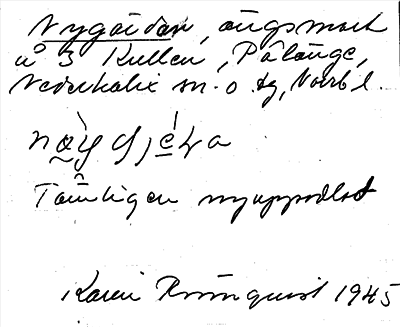 Nygärdan, ängsmark
å n° 3 Kullen, Pålänge,
Nederkalix sn. o. tg, Norrb l.
Tämligen nyuppodlat
Karin Rönnquist 1945